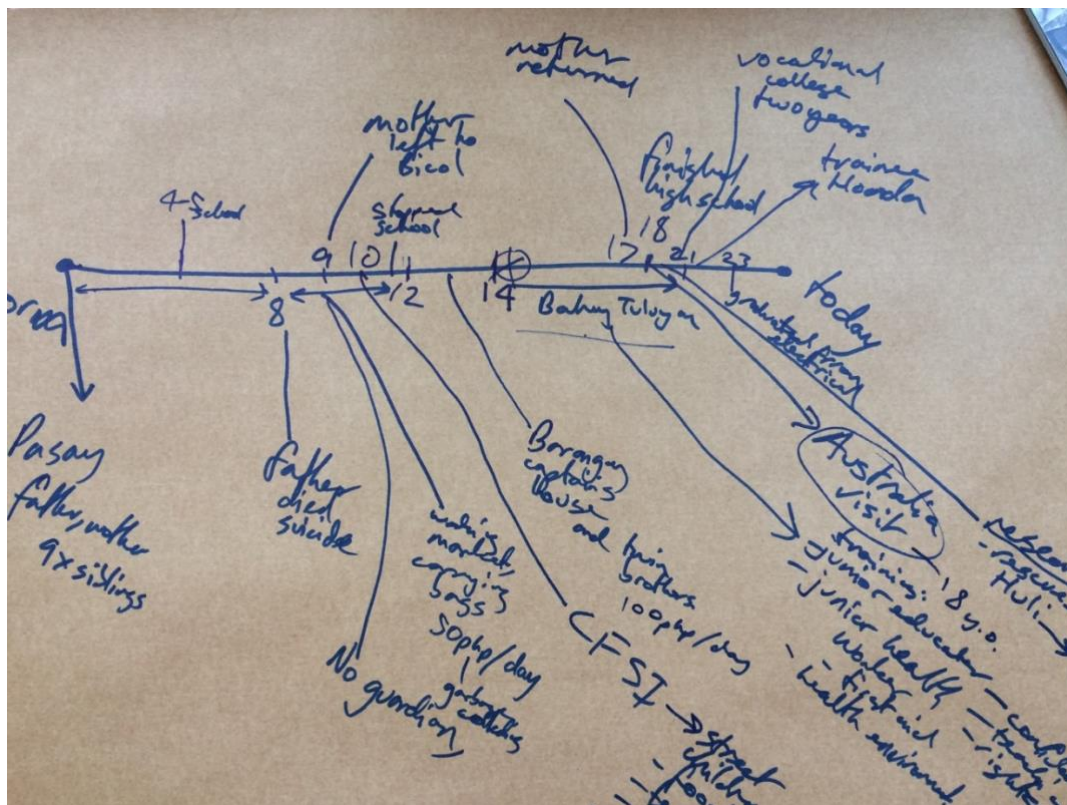 mother
returned
vocational
college
two years
trainee
Honda
mother
left to
Bicol
finished
high school
4 - School
school
9
10
11
12
8
14
17
18
21
23
today
Bahay Tuluyan
graduated
electrical
Pasay
father, mother
9x siblings
father
died
suicide
No
guardian
market,
carrying
bags
50php/day
garbage
collecting
Barangay
captain's
house
and twin
brothers
100php/day
CFSI → street
Australia
visit
18 y.o.
training:
- junior educator
- junior health
worker
- first aid
- health environment